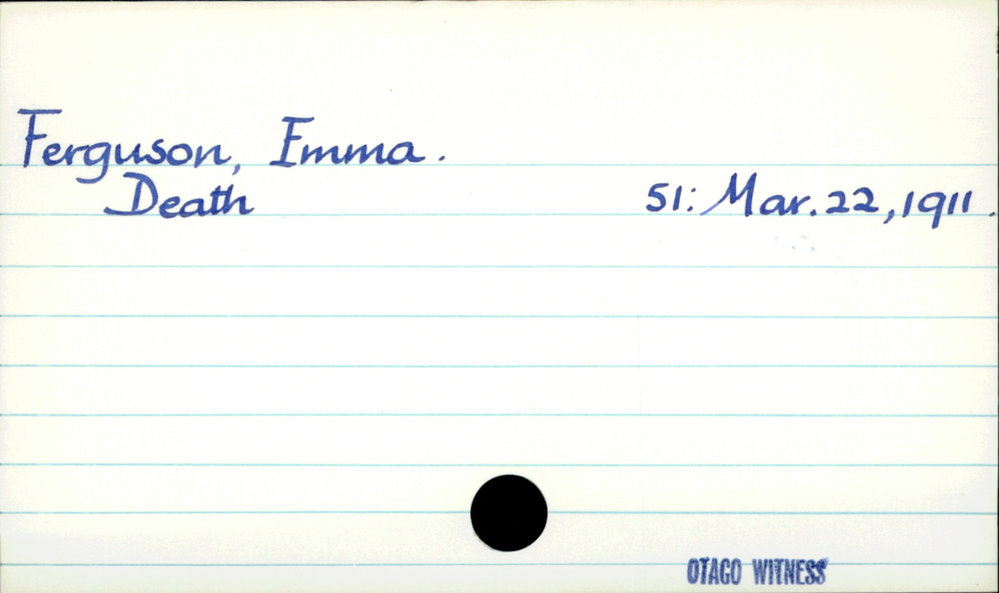 Ferguson, Emma.
Death 51: Mar. 22, 1911.
OTAGO WITNESS